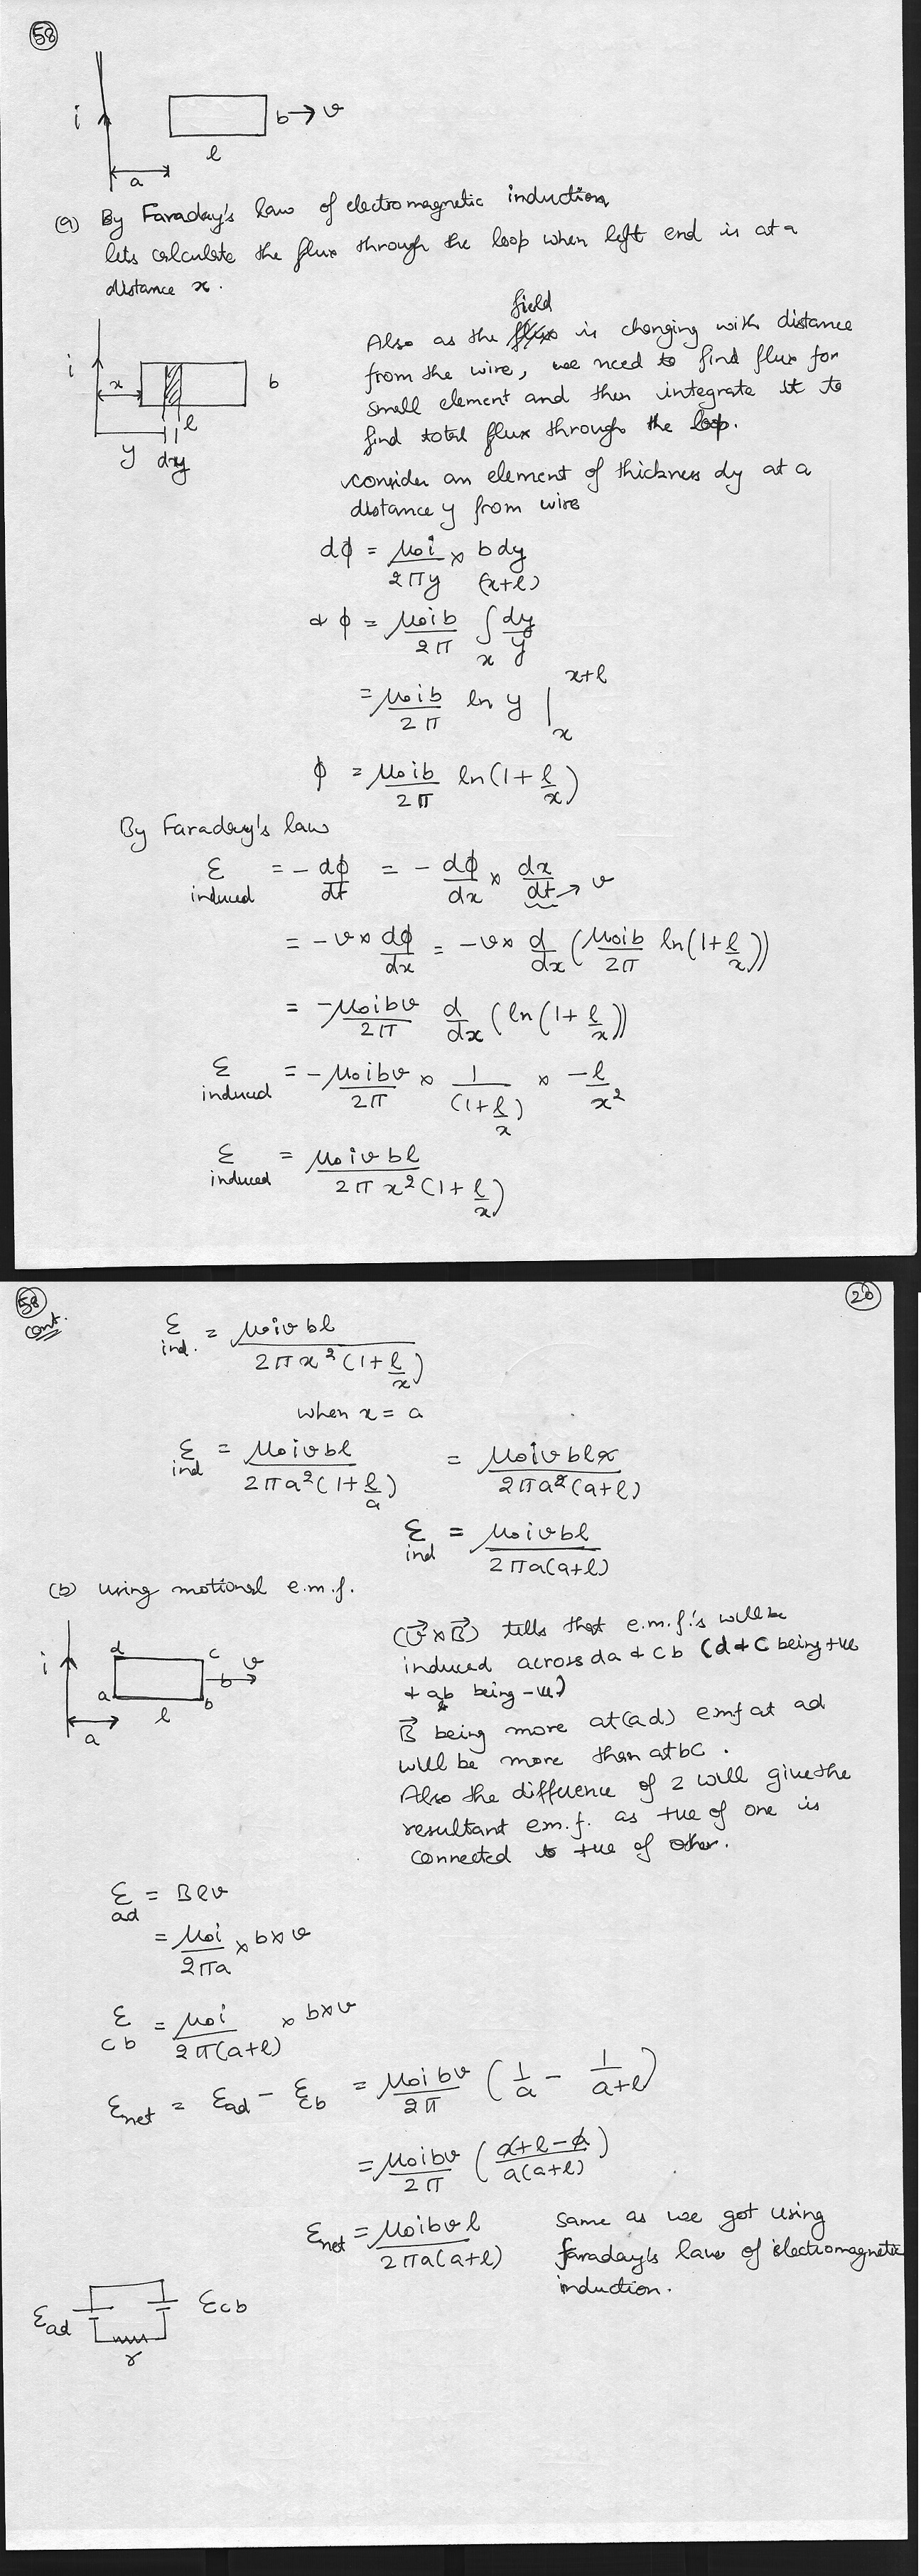 58
i
b → v
l
a
(a) By Faraday's law of electromagnetic induction,
lets calculate the flux through the loop when left end is at a
distance x.
field
Also as the flux is changing with distance
from the wire, we need to find flux for
small element and then integrate it to
find total flux through the loop.
i
x
b
l
y dy
consider an element of thickness dy at a
distance y from wire
dϕ = μ₀i/2πy × b dy
& ϕ = μ₀ib/2π ∫ₓ^(x+l) dy/y
= μ₀ib/2π ln y |ₓ^(x+l)
ϕ = μ₀ib/2π ln(1 + l/x)
By Faraday's law
ε induced = - dϕ/dt = - dϕ/dx × dx/dt → v
= -v × dϕ/dx = -v × d/dx (μ₀ib/2π ln(1 + l/x))
= -μ₀ibv/2π d/dx (ln(1 + l/x))
ε induced = - μ₀ibv/2π × 1/(1 + l/x) × -l/x²
ε induced = μ₀ivbl/2πx²(1 + l/x)
58 cont.
28
ε ind. = μ₀ivbl/2πx²(1 + l/x)
when x = a
ε ind = μ₀ivbl/2πa²(1 + l/a) = μ₀ivbla/2πa²(a+l)
ε ind = μ₀ivbl/2πa(a+l)
(b) using motional e.m.f.
i
d c
b v
a b
l
a
(v⃗ × B⃗) tells that e.m.f.'s will be
induced across da & cb (d & c being +ve
& ab being -ve)
B⃗ being more at (ad) emf at ad
will be more than at bc.
Also the difference of 2 will give the
resultant e.m.f. as +ve of one is
connected to +ve of other.
ε ad = Blv
= μ₀i/2πa × b × v
ε cb = μ₀i/2π(a+l) × b × v
ε net = ε ad - ε cb = μ₀ibv/2π (1/a - 1/(a+l))
= μ₀ibv/2π (a+l-a/a(a+l))
ε net = μ₀ibvl/2πa(a+l)
Same as we got using
faraday's law of electromagnetic
induction.
ε ad
ε cb
r